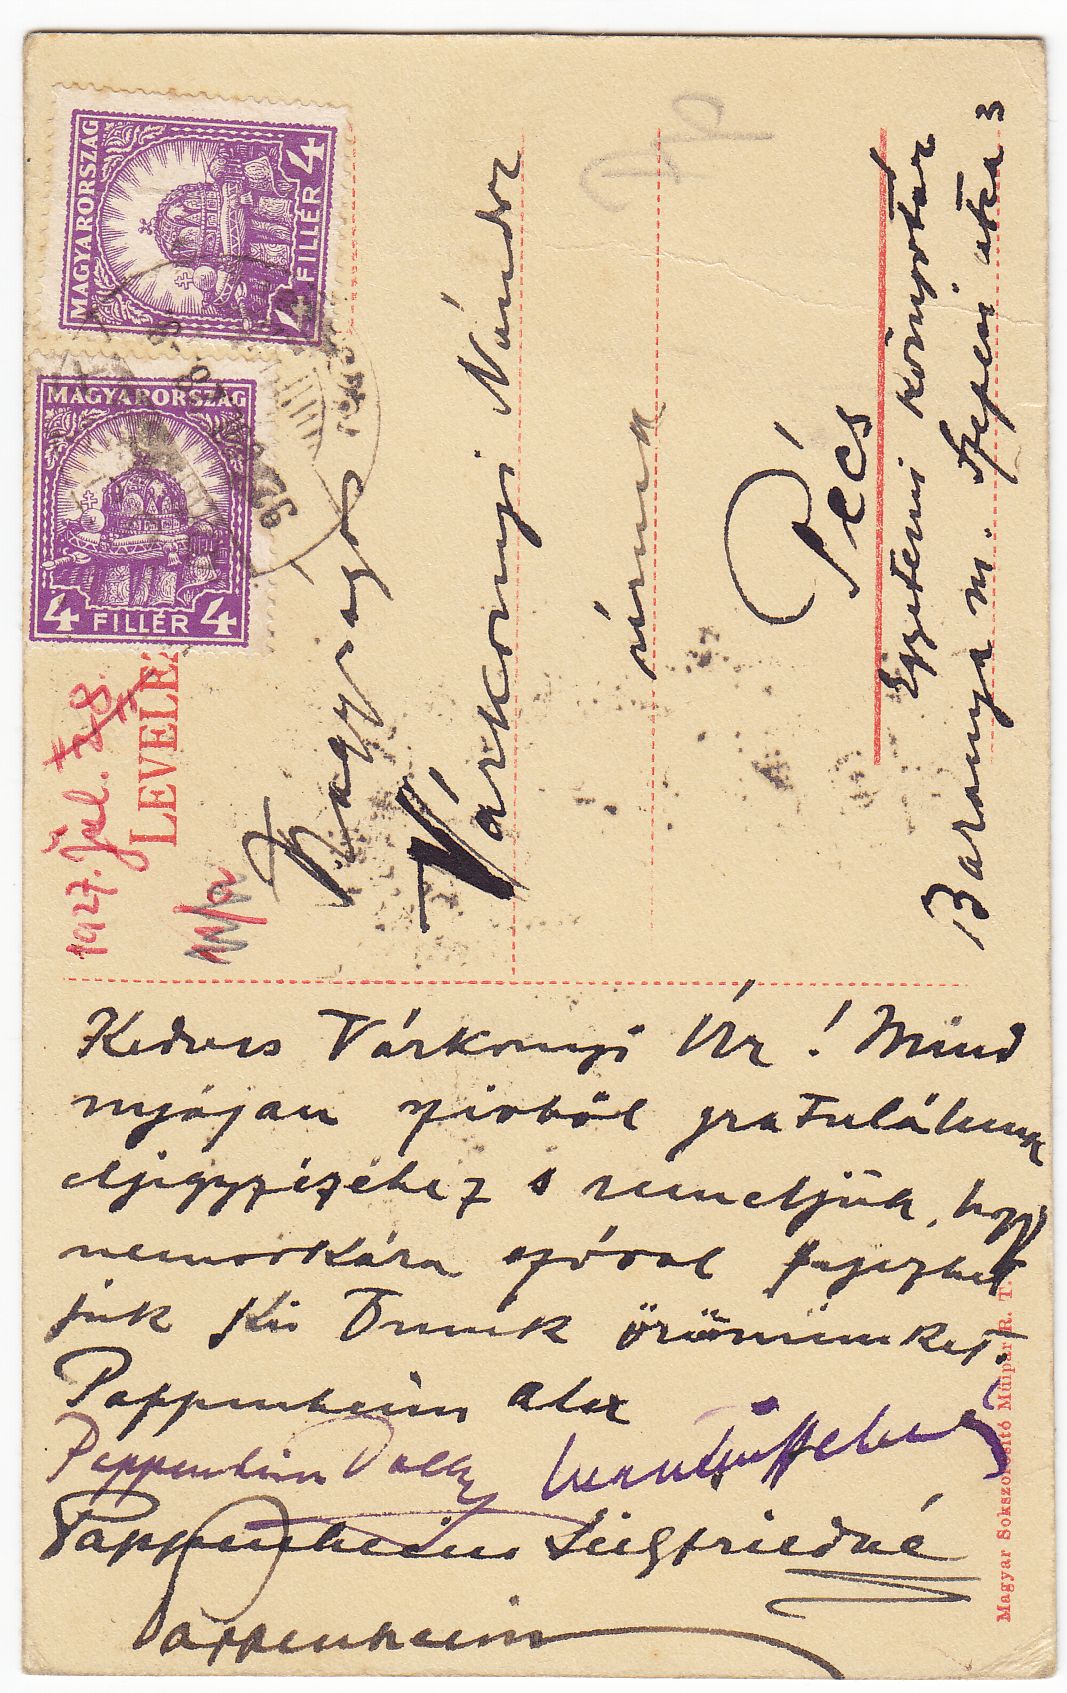 MAGYARORSZÁG
4 FILLÉR 4
MAGYARORSZÁG
4 FILLÉR 4
1927. Jul. 28.
LEVELEZ
Nagyságos
Várkonyi Nándor
úrnak
Pécs
Egyetemi könyvtár
Baranya m. Szepesi utca 3
Kedves Várkonyi Úr! Mind
nyájan szivből gratulálunk
eljegyzéséhez s reméljük, hogy
nemsokára szóval fejezhet
jük ki Önnek örömünket.
Pappenheim Alex
Pappenheim Polly
Pappenheim Siegfriedné
Pappenheim
Magyar Sokszorosító Műipar R. T.